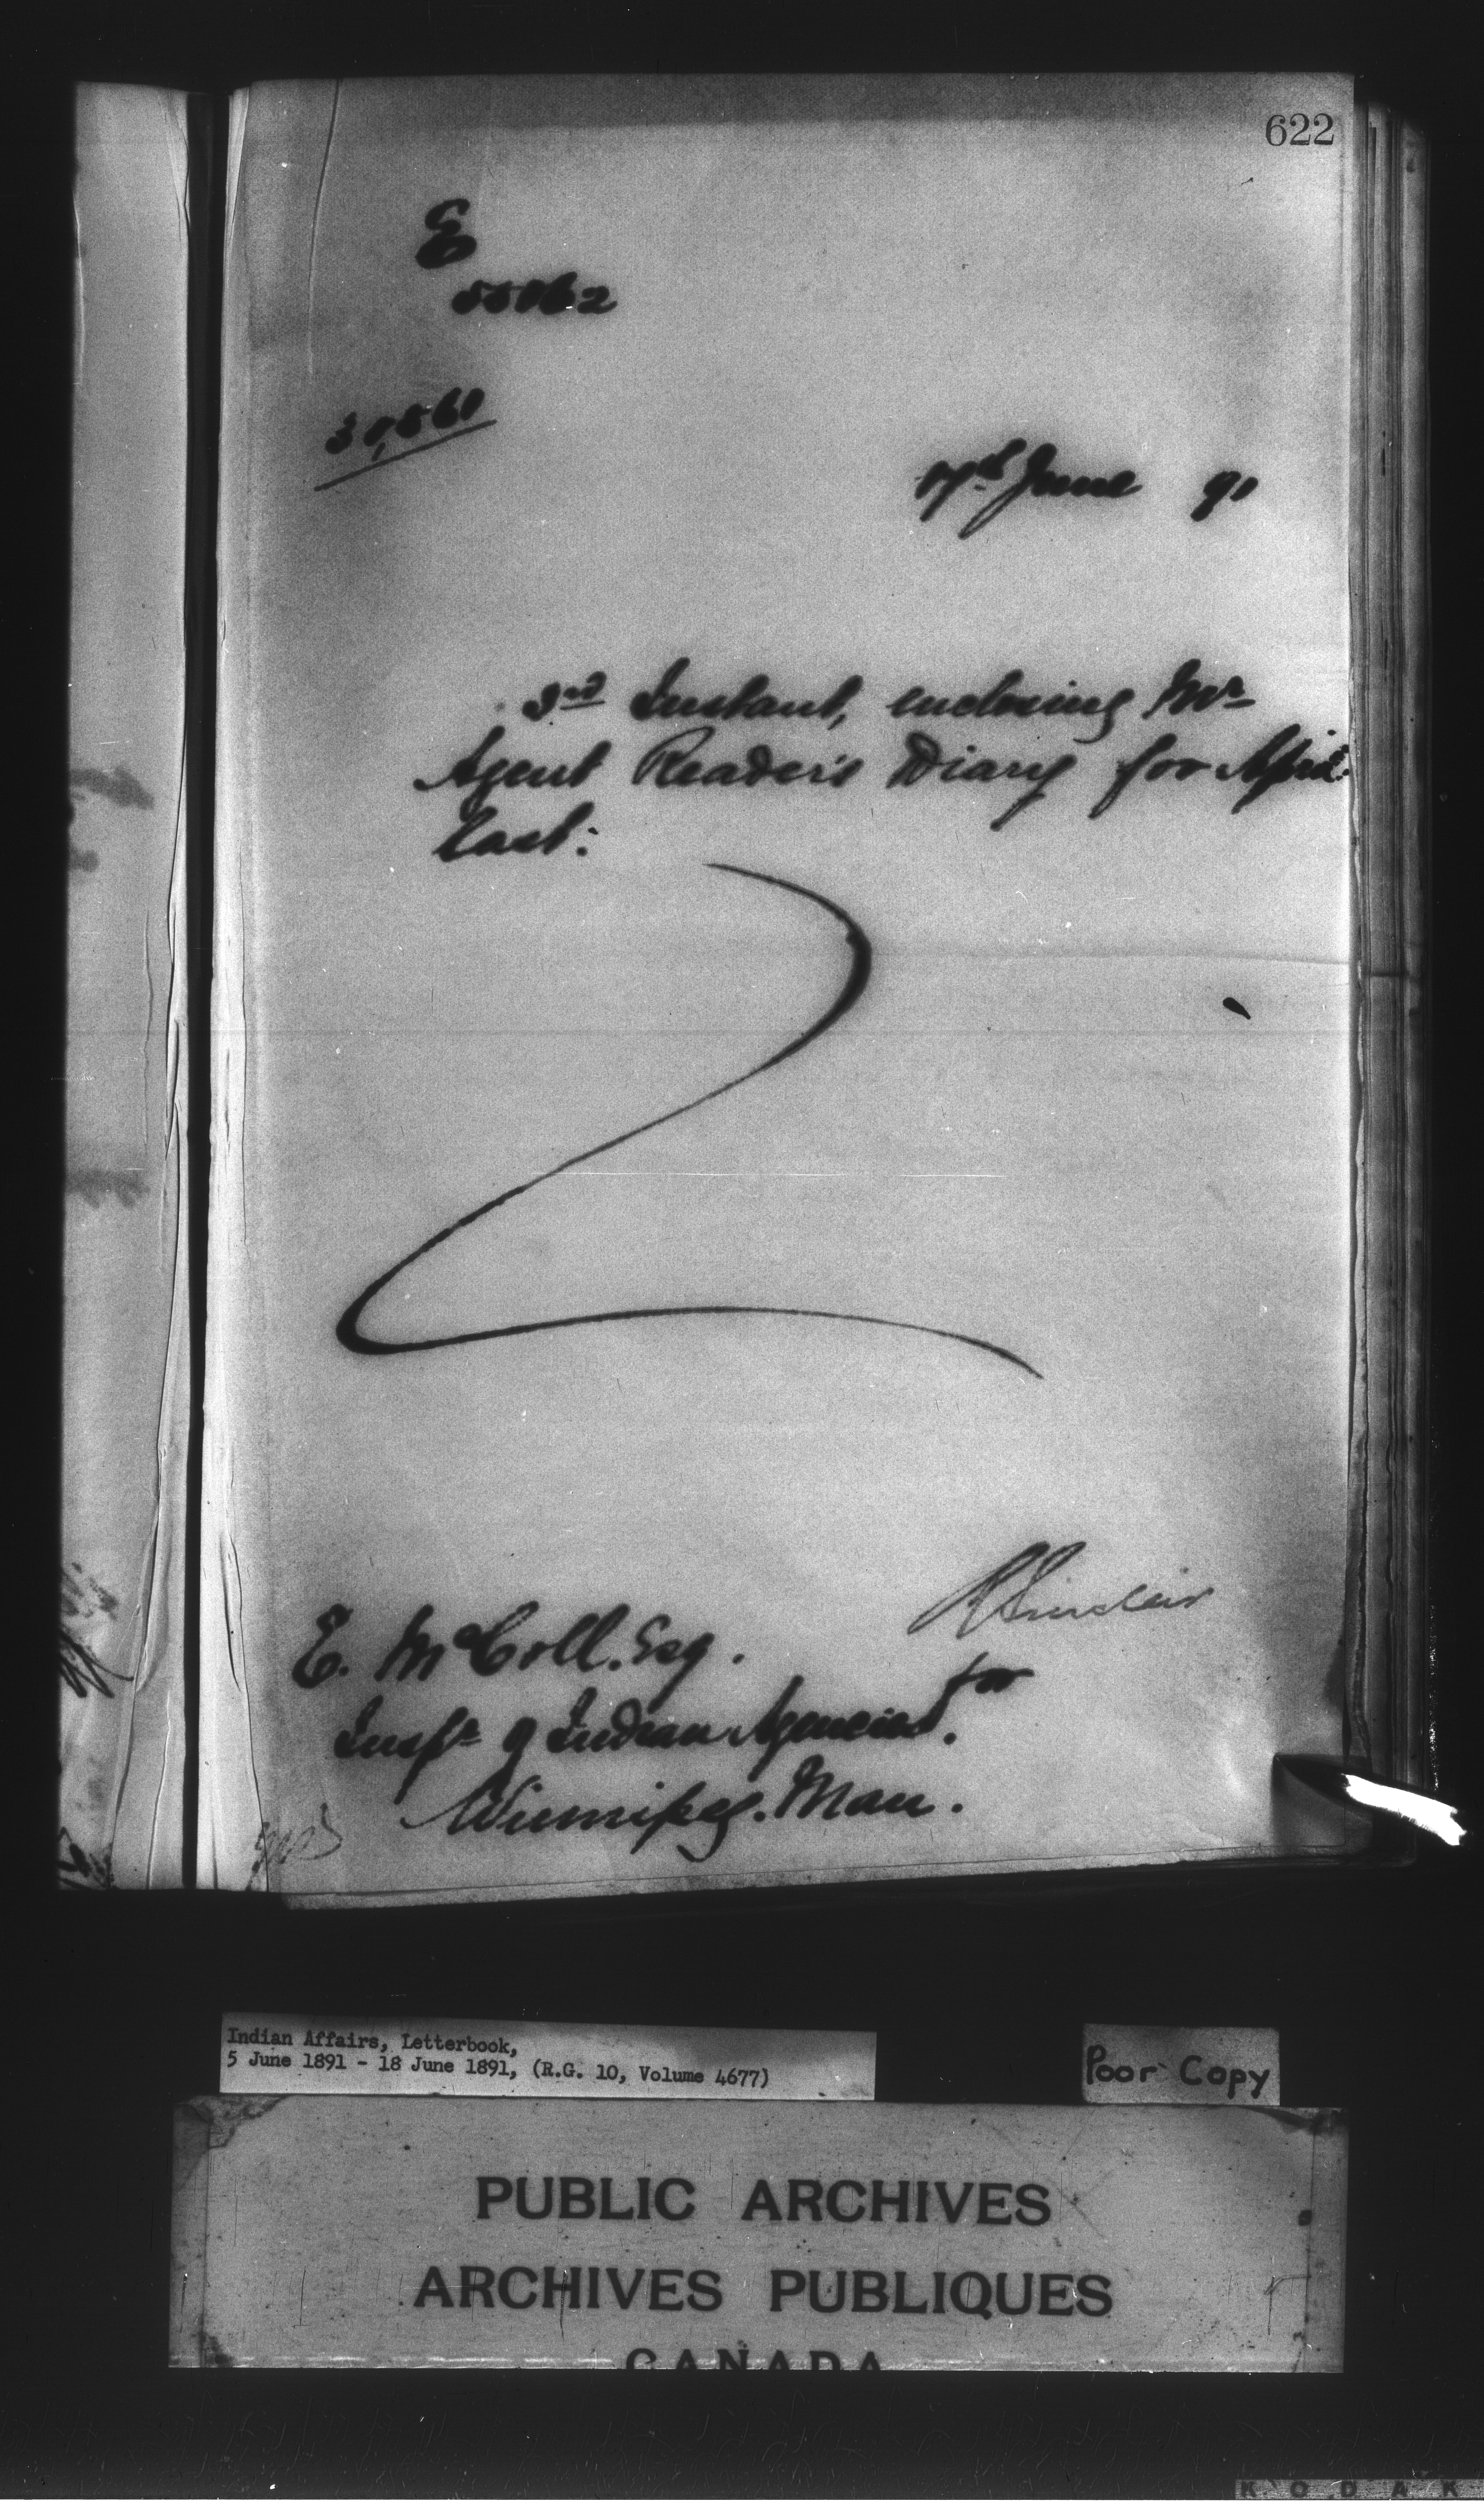 622
E
55062
30,560
17th June 91
3rd Instant, enclosing Mr
Agent Reader's Diary for April
last:
R Sinclair
E. McColl. Esq.
for
Inspr of Indian Agencies.
Winnipeg. Man.
Indian Affairs, Letterbook,
5 June 1891 - 18 June 1891, (R.G. 10, Volume 4677)
Poor Copy
PUBLIC ARCHIVES
ARCHIVES PUBLIQUES
CANADA
KODAK